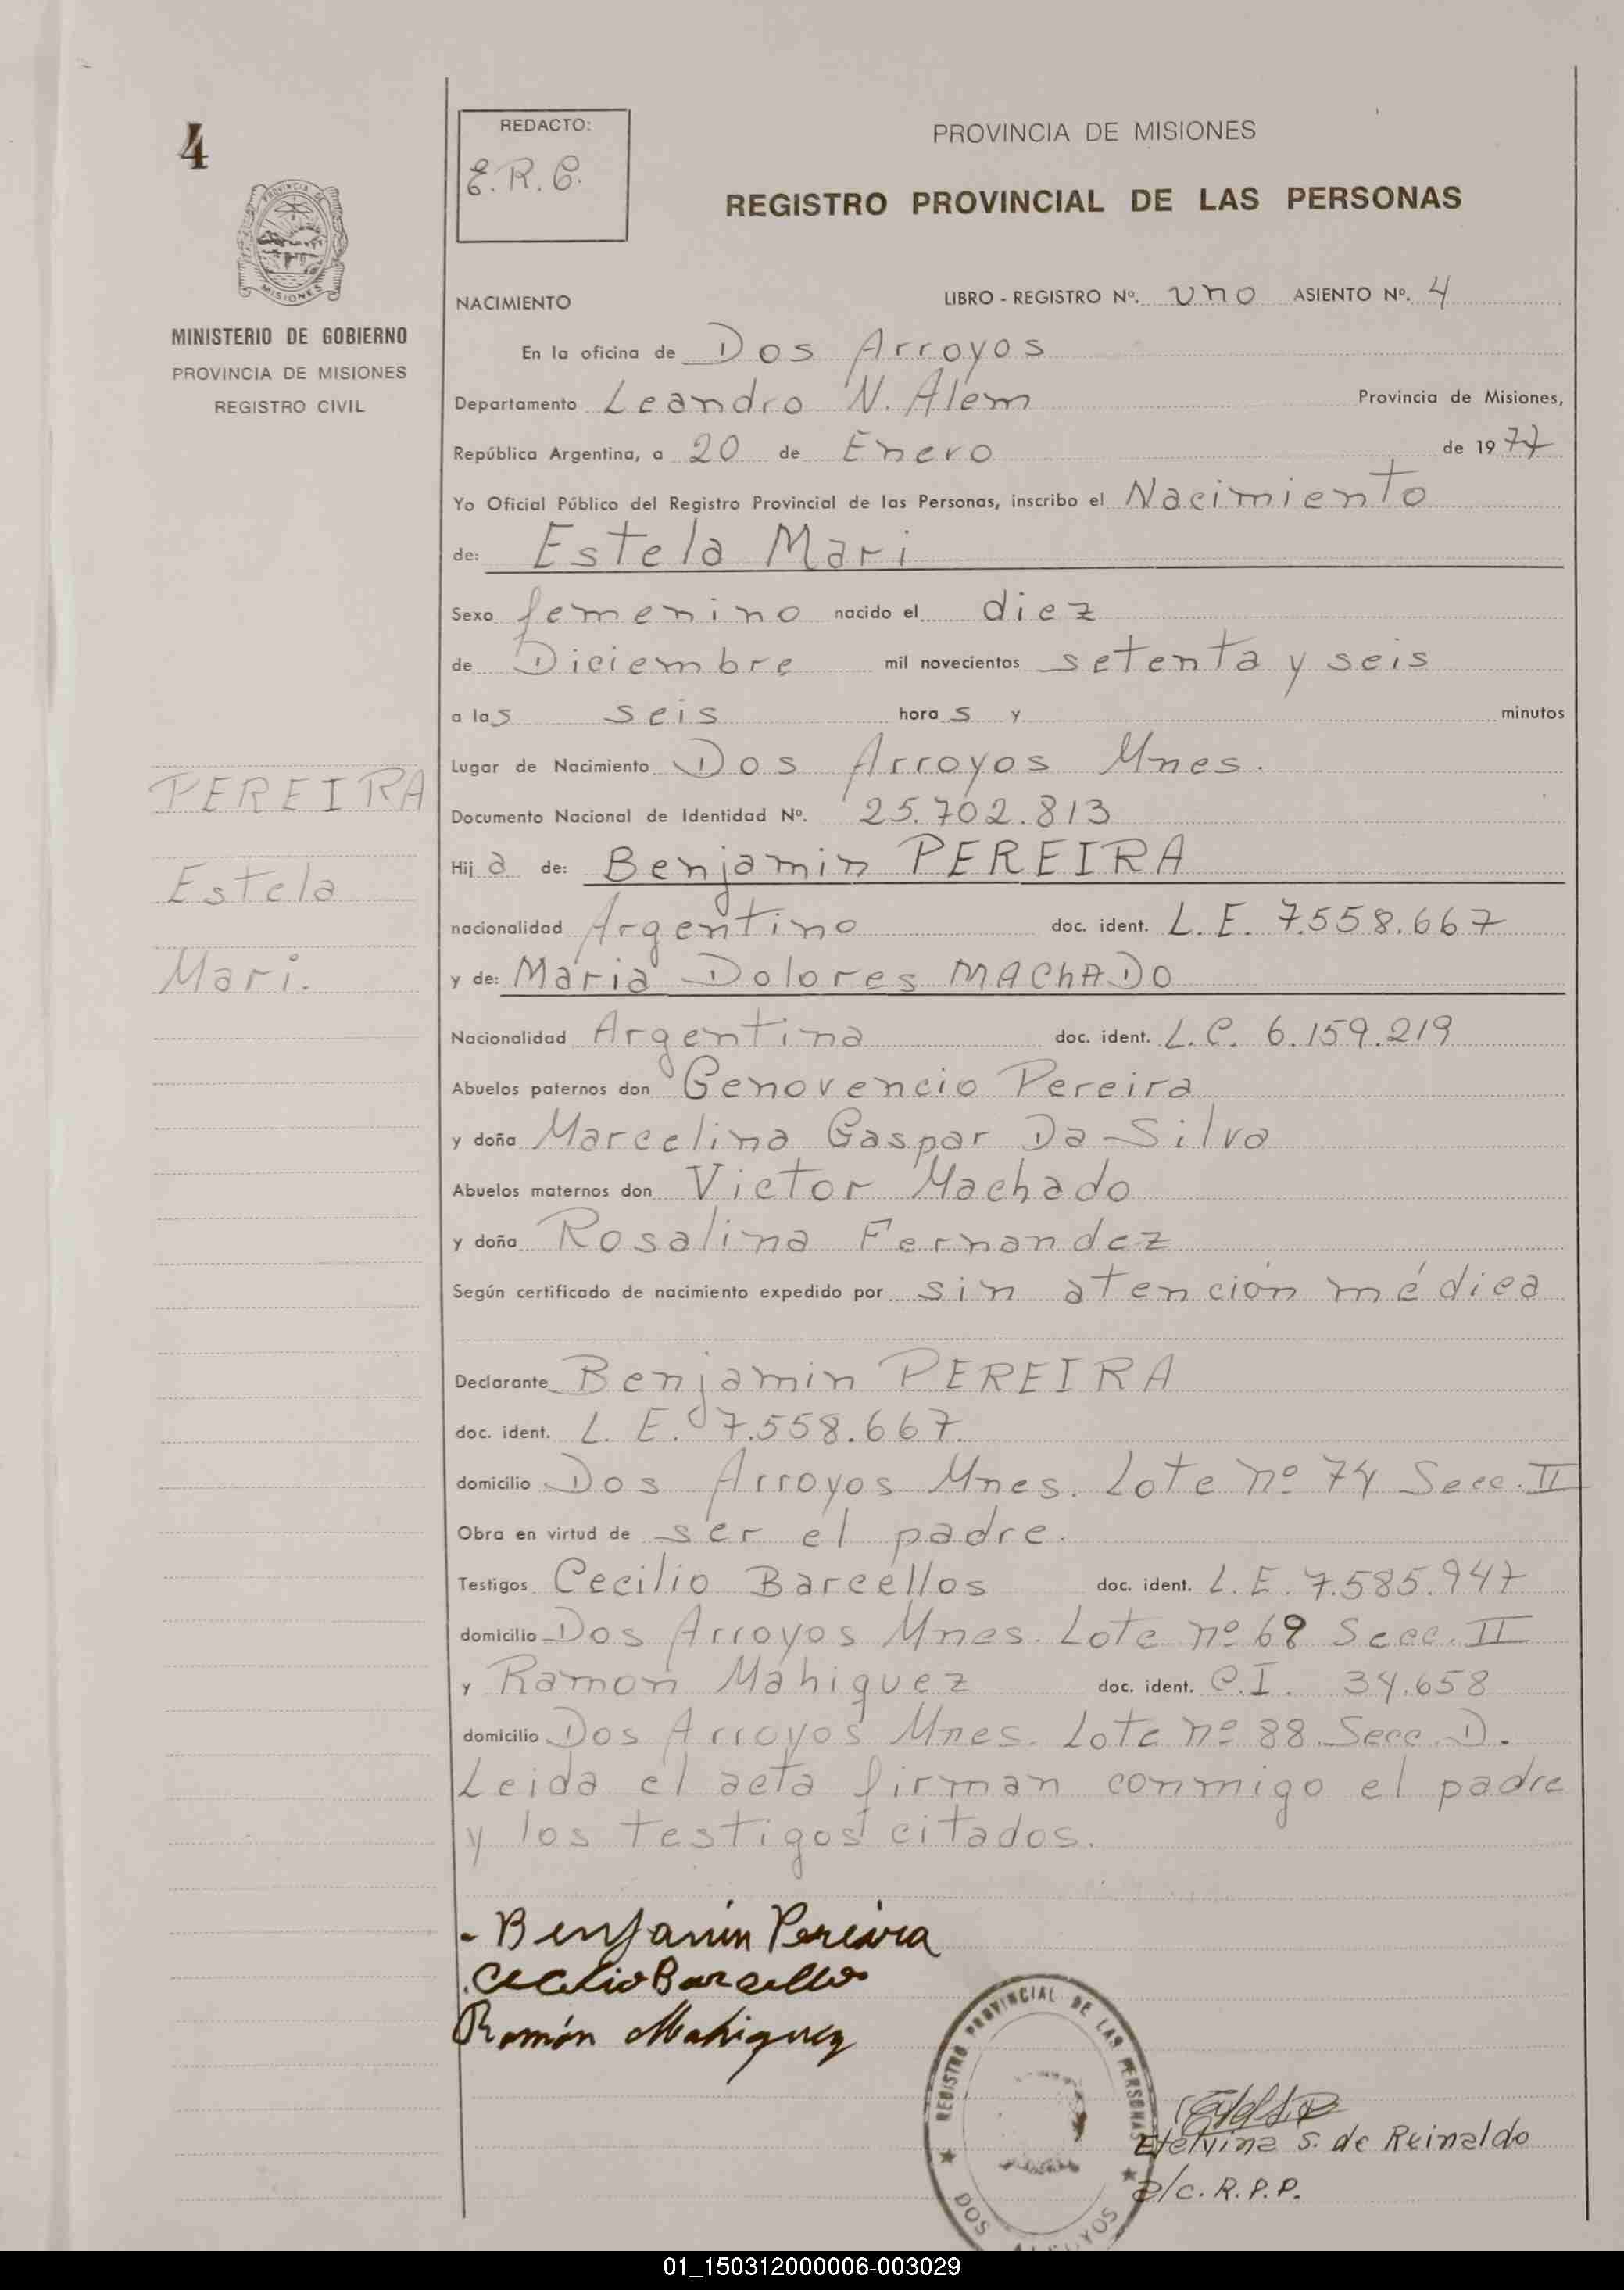 4
REDACTO:
E. R. C.
PROVINCIA DE MISIONES
REGISTRO PROVINCIAL DE LAS PERSONAS
PROVINCIA DE
MISIONES
MINISTERIO DE GOBIERNO
PROVINCIA DE MISIONES
REGISTRO CIVIL
NACIMIENTO
LIBRO - REGISTRO Nº. uno ASIENTO Nº. 4
En la oficina de Dos Arroyos
Departamento Leandro N. Alem Provincia de Misiones,
República Argentina, a 20 de Enero de 1977
Yo Oficial Público del Registro Provincial de las Personas, inscribo el Nacimiento
de: Estela Mari
Sexo femenino nacido el diez
de Diciembre mil novecientos setenta y seis
a las seis horas y minutos
Lugar de Nacimiento Dos Arroyos Mnes.
Documento Nacional de Identidad Nº. 25.702.813
PEREIRA
Estela
Mari.
Hija de: Benjamin PEREIRA
nacionalidad Argentino doc. ident. L. E. 7.558.667
y de: Maria Dolores MAChADO
Nacionalidad Argentina doc. ident. L. C. 6.159.219
Abuelos paternos don Genovencio Pereira
y doña Marcelina Gaspar Da Silva
Abuelos maternos don Victor Machado
y doña Rosalina Fernandez
Según certificado de nacimiento expedido por sin atención médica
Declarante Benjamin PEREIRA
doc. ident. L. E. 7.558.667.
domicilio Dos Arroyos Mnes. Lote nº 74 Secc. II
Obra en virtud de ser el padre.
Testigos Cecilio Barcellos doc. ident. L. E. 7.585.947
domicilio Dos Arroyos Mnes. Lote nº 69 Secc. II
y Ramón Mahiquez doc. ident. C. I. 34.658
domicilio Dos Arroyos Mnes. Lote nº 88 Secc. D.
Leida el acta firman conmigo el padre
y los testigos citados.
- Benjamin Pereira
Cecilio Barcellos
Ramón Mahiquez
REGISTRO PROVINCIAL DE LAS PERSONAS
DOS ARROYOS
Etelvina S. de Reinaldo
a/c. R. P. P.
01_150312000006-003029